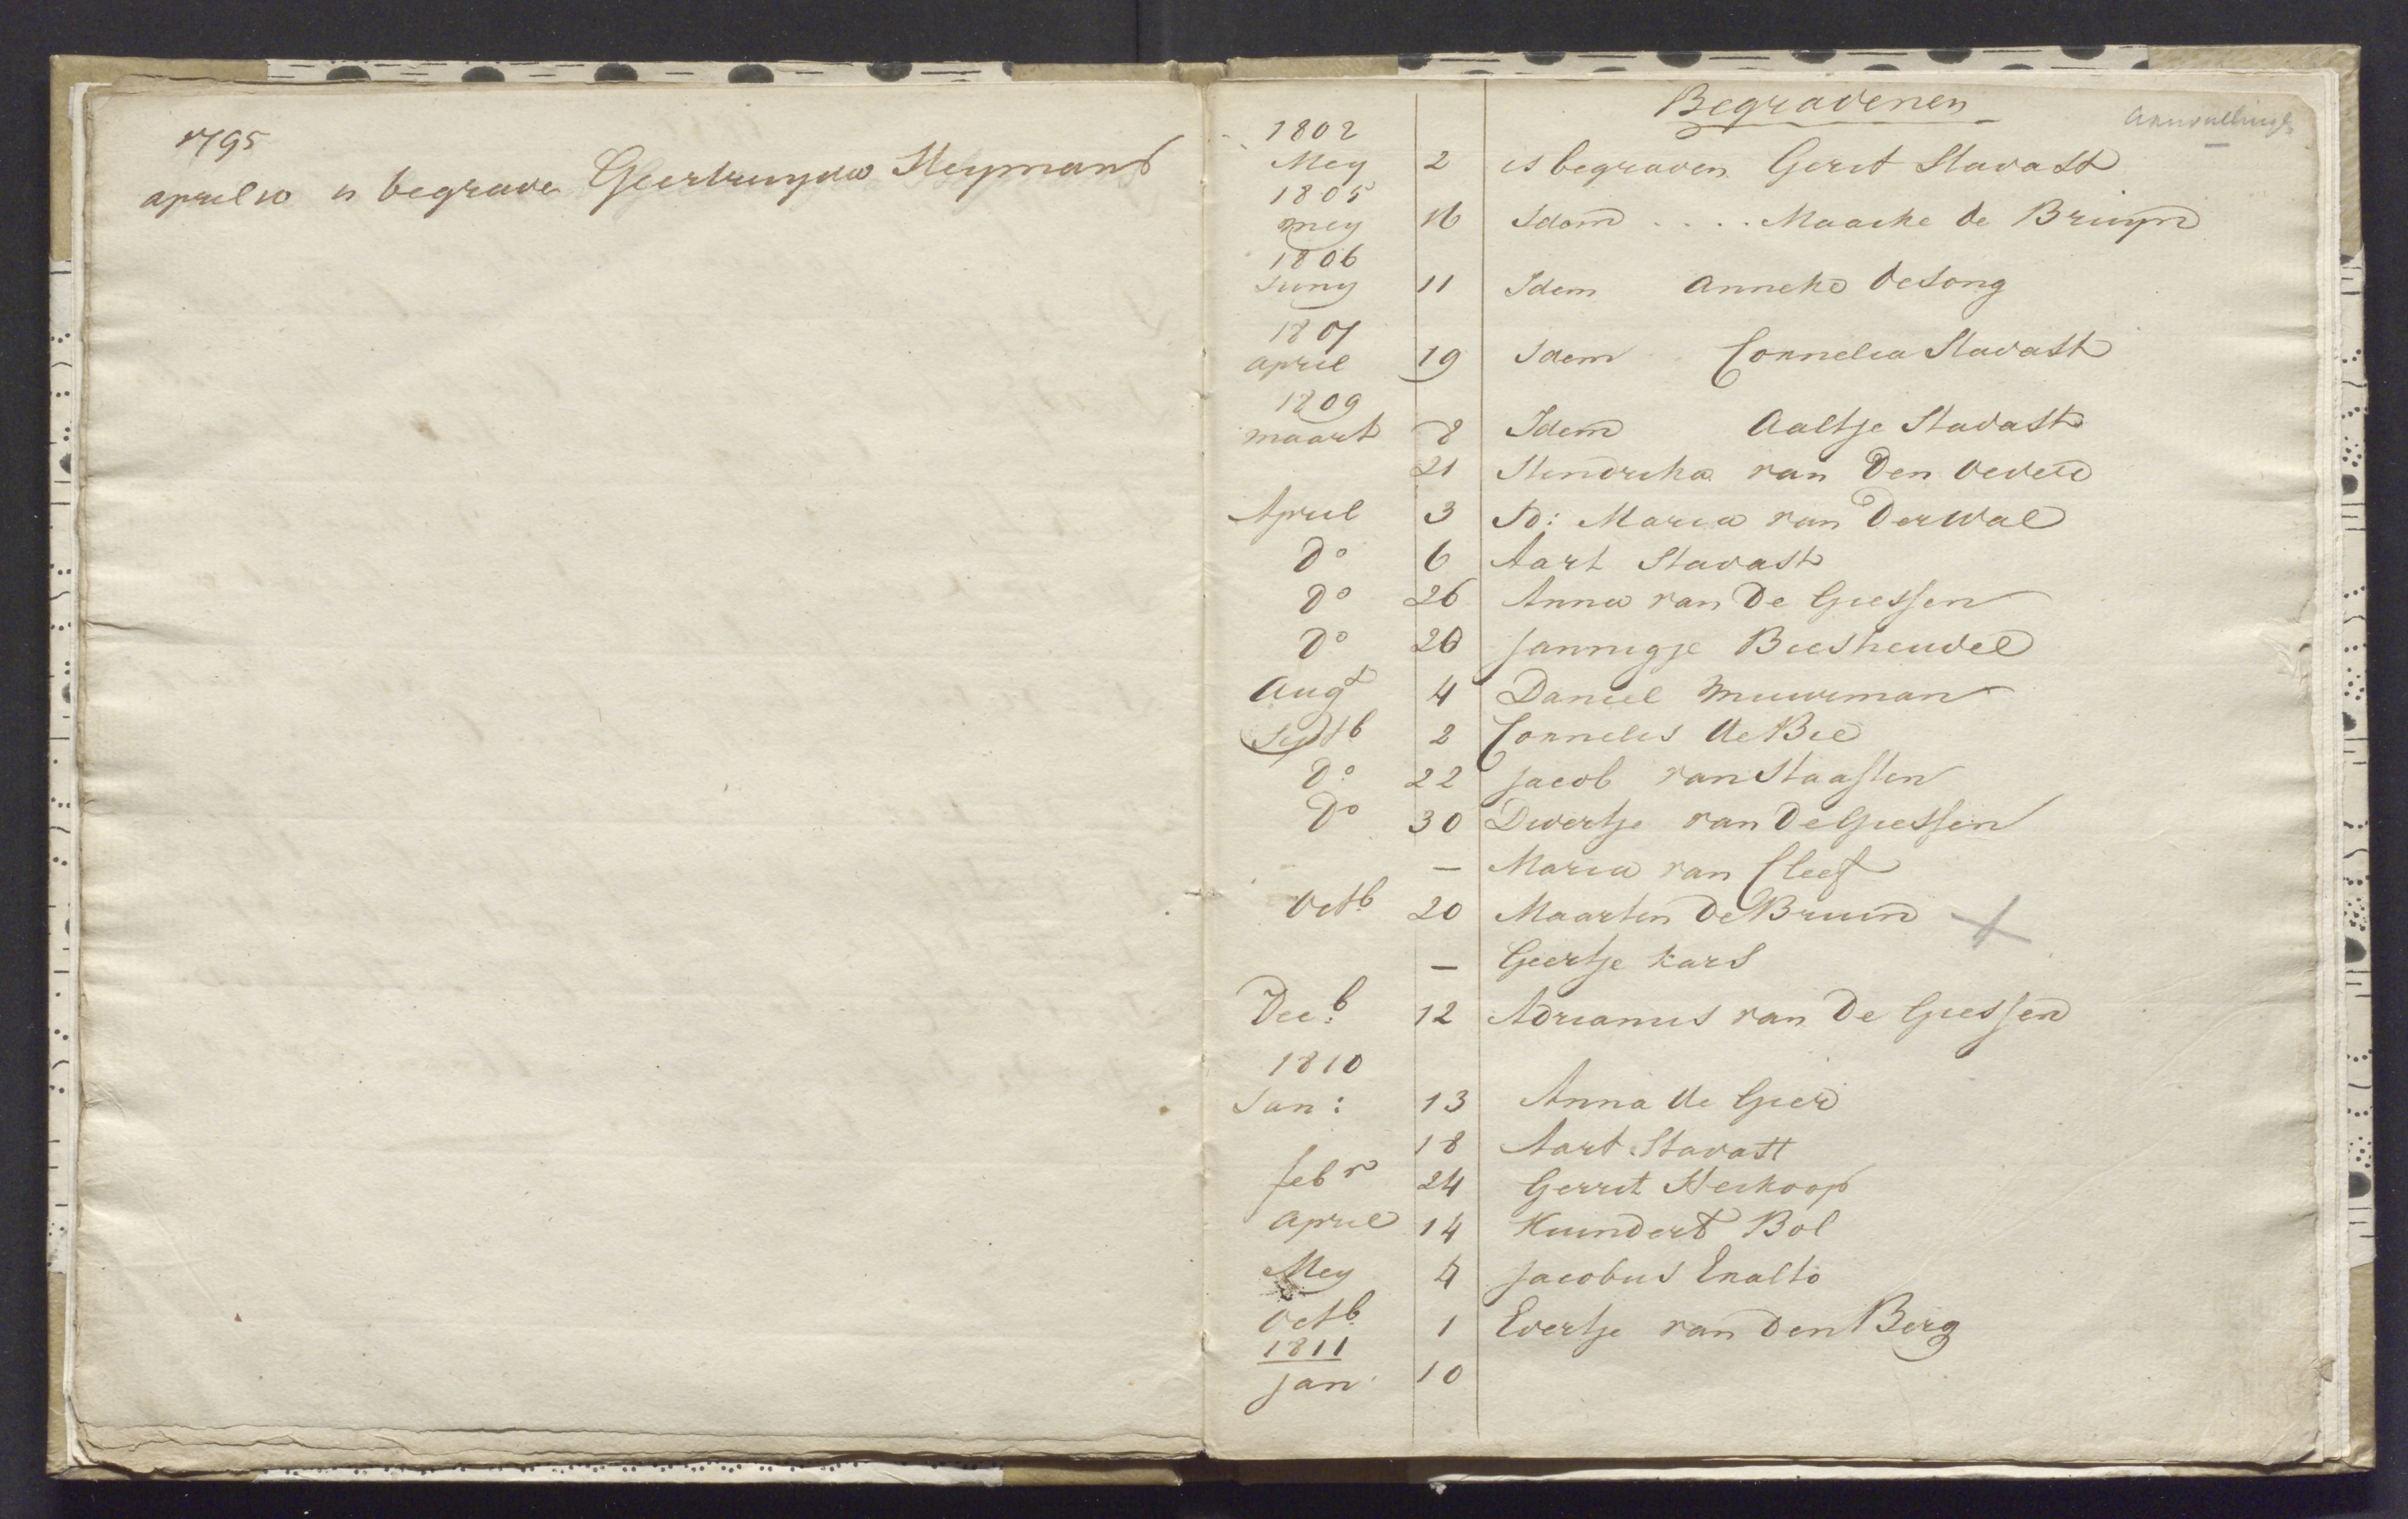 1795
april 10 is begrave Geertruyda Heymans
Begravenen
aanvulling
1802
Mey 2 is begraven Gerit Stavast
1805
mey 16 Idem .... Maaike de Bruyn
1806
Juny 11 Idem Anneke de Jong
1807
april 19 Idem Cornnelia Stavast
1809
maart 8 Idem Aaltje Stavast
21 Hendrika van Den Oever
April 3 Id: Maria van Der Wal
do 6 Aart Stavast
do 26 Anna van De Giessen
do 26 Jannigje Biesheuvel
Augt 4 Daniel Muurman
Septb 2 Cornnelis de Bie
do 22 Jacob van Haaften
do 30 Divertje van De Giessen
— Maria van Cleef
Octb 20 Maarten De Bruin
— Geertje kars
Decb: 12 Adrianus van De Giessen
1810
Jan: 13 Anna de Gier
18 Aart Stavast
febr 24 Gerrit Heikoop
April 14 Huindert Bol
Mey 4 Jacobus Exalto
Octb 1 Evertje van Den Berg
1811
Jan 10